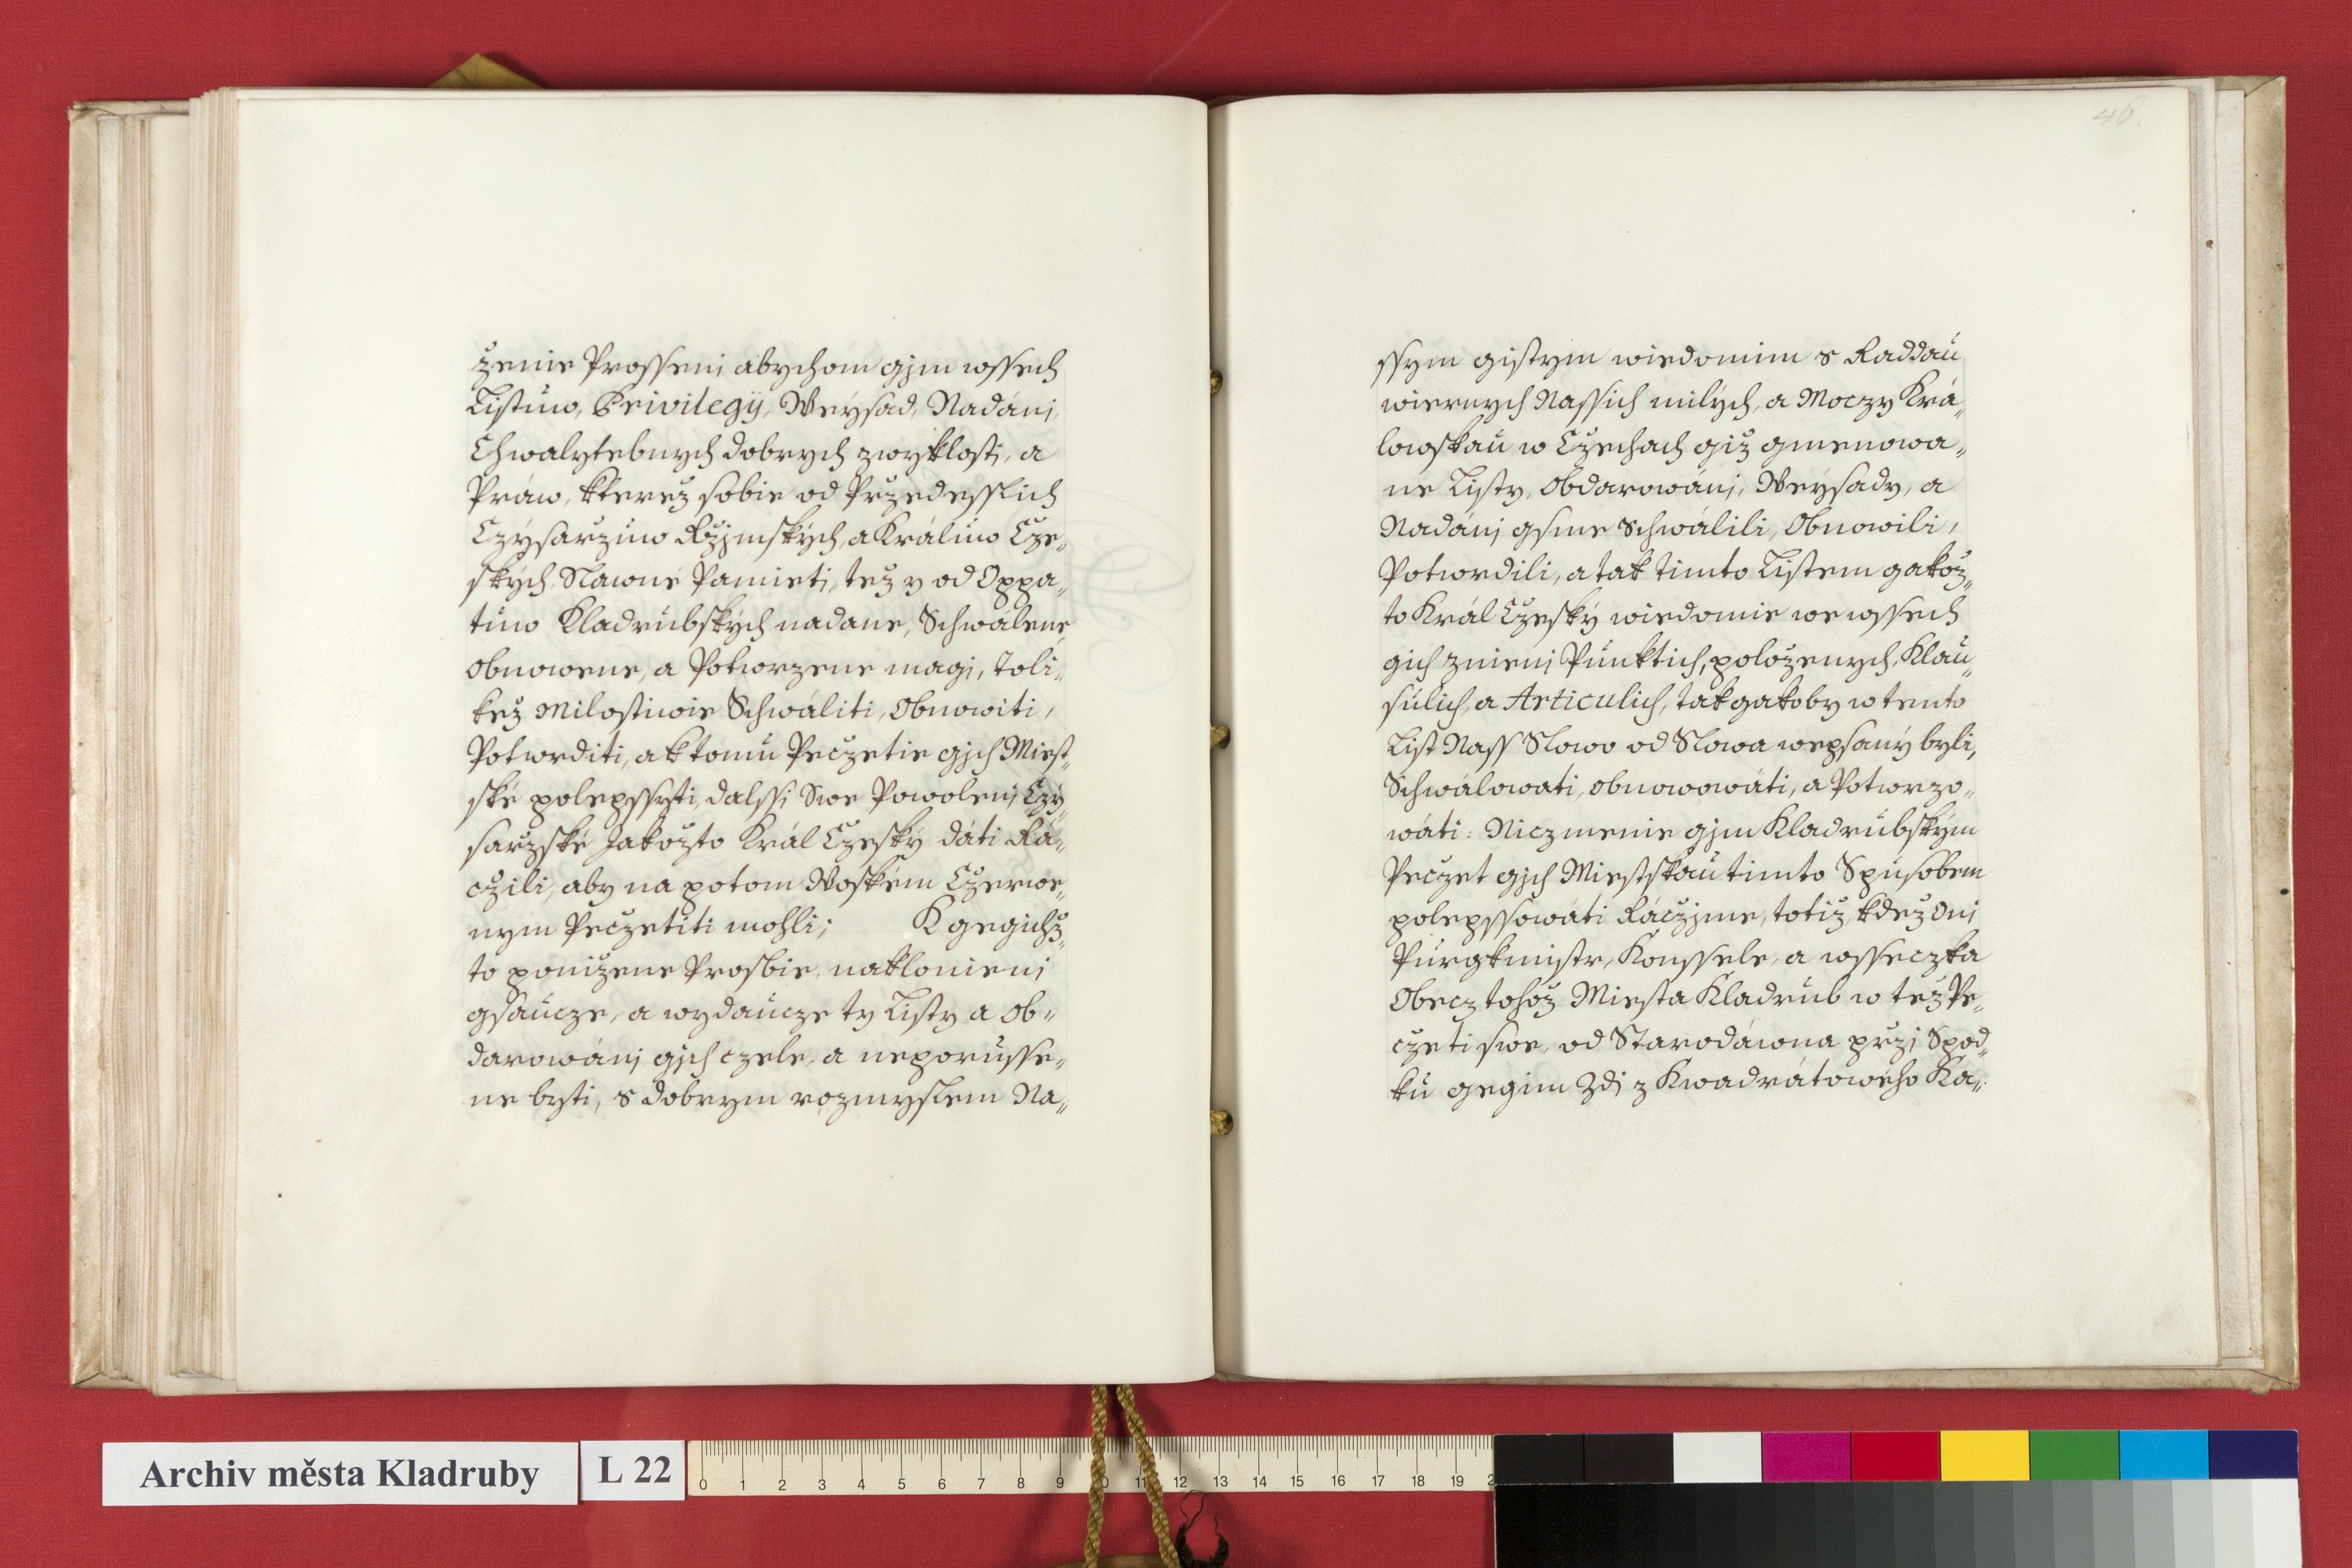 ženie Prosseni abychom gjm wssech
Listuw, Privilegÿ, Weysad, Nadánj,
Chwalytebnych dobrych zwyklostj, a
Práw, kterež sobie od Przedesslich
Czÿsaržuw Ržjmských, a Králuw Cze„
ských Slawné Pamieti, též y od Oppa„
tuw Kladrubských nadane, Schwálené,
obnowene, a Potwrzene magj, Toli„
kež Milostiwie Schwáliti, Obnowiti,
Potwrditi, a k tomu Peczetie gjch Miest„
ské polepssyti, dalssi Swe Powolenj Czÿ„
saržské Jakožto Král Czeský dáti Rá„
cžili, aby na potom Woskem Czerwe„
nym Peczetiti mohli; K gegichž„
to ponižene Prosbie, naklonieni
gsaucze, a wydaucze ty Listy a Ob„
darowánj gjch czele, a neporusse„
ne byti, s dobrym rozmyslem Na„
46.
ssym gistym wiedomim s Raddau
wiernych Nassich milých, a Moczy Krá„
lowskau w Czechach giž gmenowa„
ne Listy, Obdarowánj, Weysady, a
Nadánj gsme schwálili, Obnowili,
Potwrdili, a tak timto Listem gakož„
to Král Czeský wiedomie we wssech
gich znienj Punktich, položenych, Klau„
sulich, a Articulich, tak gakoby w tento
List Nass Slowo od Slowa wepsaný byli,
Schwálowati, obnowowáti, a Potwrzo„
wáti: Nicz menie gjm Kladrubským
Peczet gjch Miestskau timto Spusobem
polepssowáti Ráczjme, totiž, kdež Oni
Purgkmistr, Konssele, a wsseczka
Obecz tohož Miesta Kladrub w též Pe„
czeti swe, od Starodáwna pržj Spod„
ku gegim Zdj z Kwadrátowého Ka„
Archiv města Kladruby
L 22
0 1 2 3 4 5 6 7 8 9 10 11 12 13 14 15 16 17 18 19 2